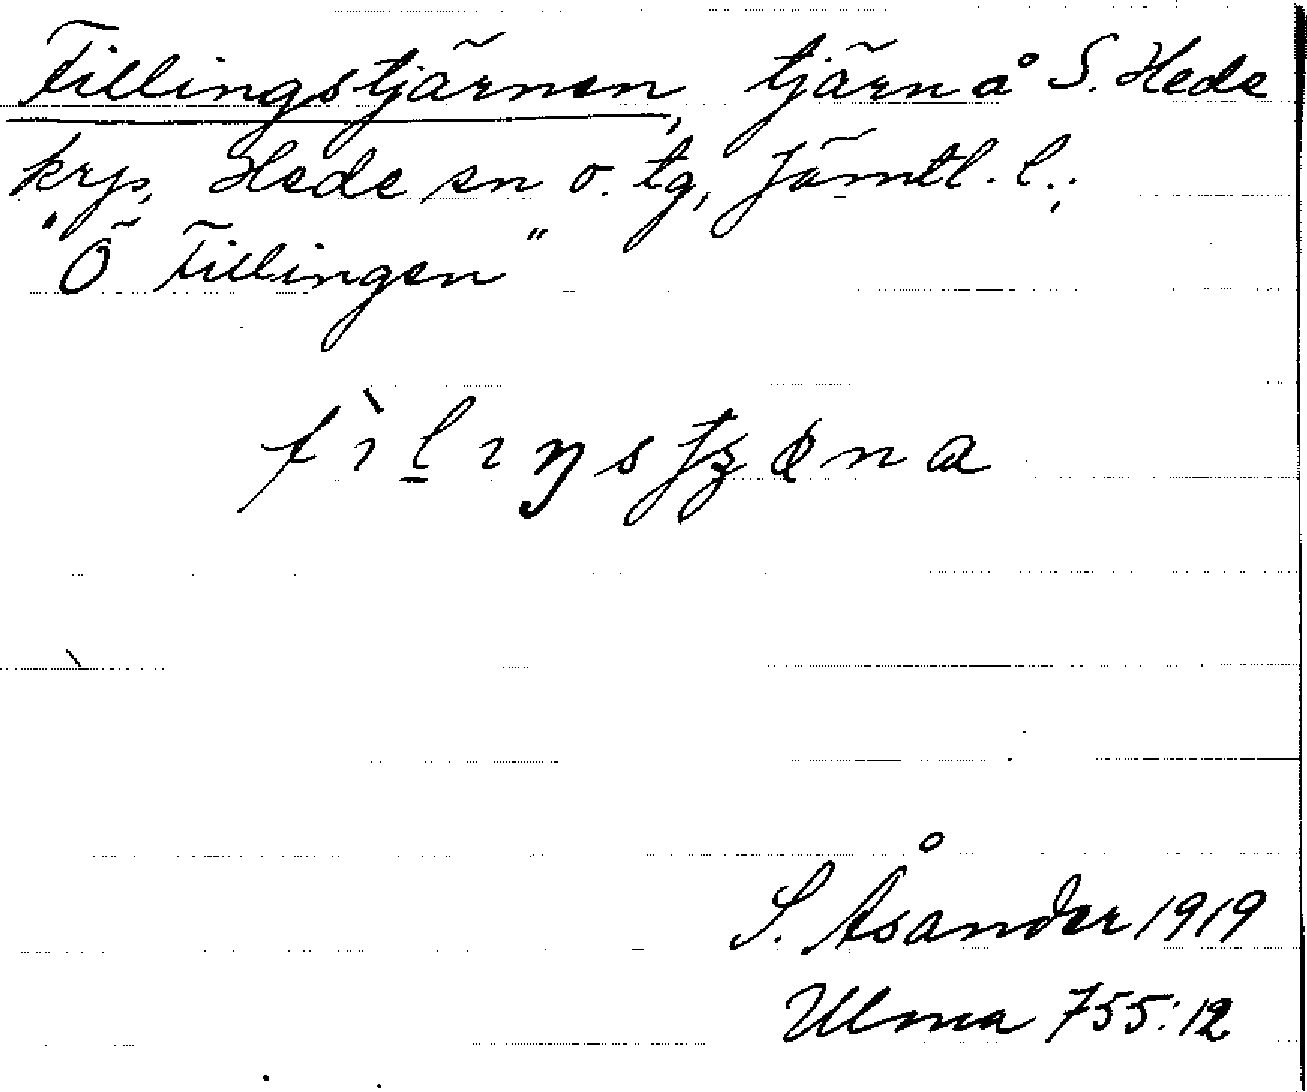 Fillingstjärnen, tjärn å S. Hede
krp, Hede sn o. tg, Jämtl. l.;
"Ö Fillingen"
S. Åsander 1919
Ulma 755:12